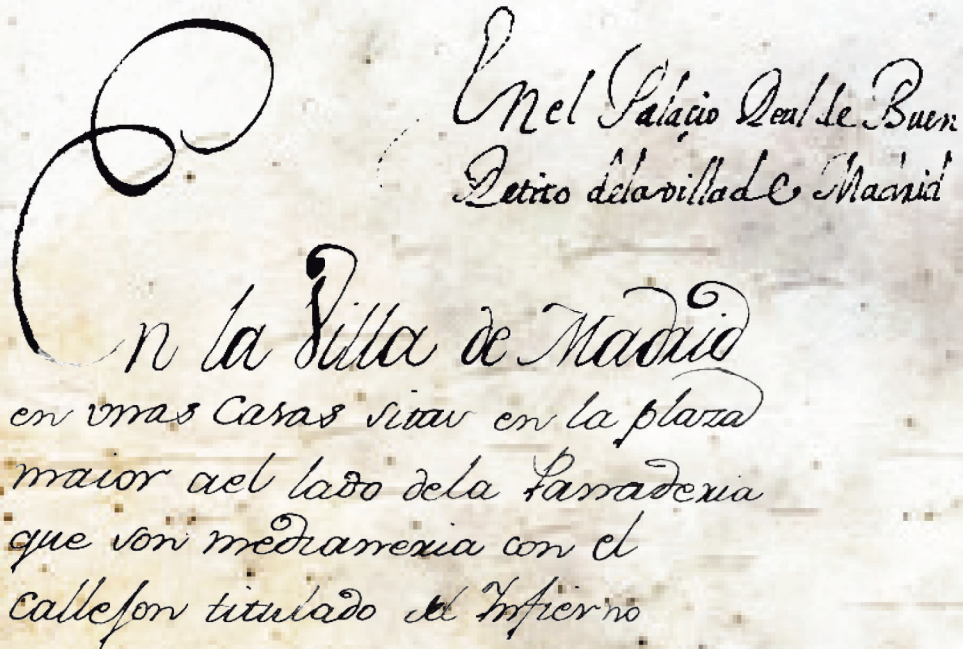 En el Palacio Real de Buen
Retiro dela villa de Madrid
En la Villa de Madrid
en vnas Casas sitas en la plaza
maior ael lado dela Pannaderia
que son medianneria con el
callejon titulado el Infierno